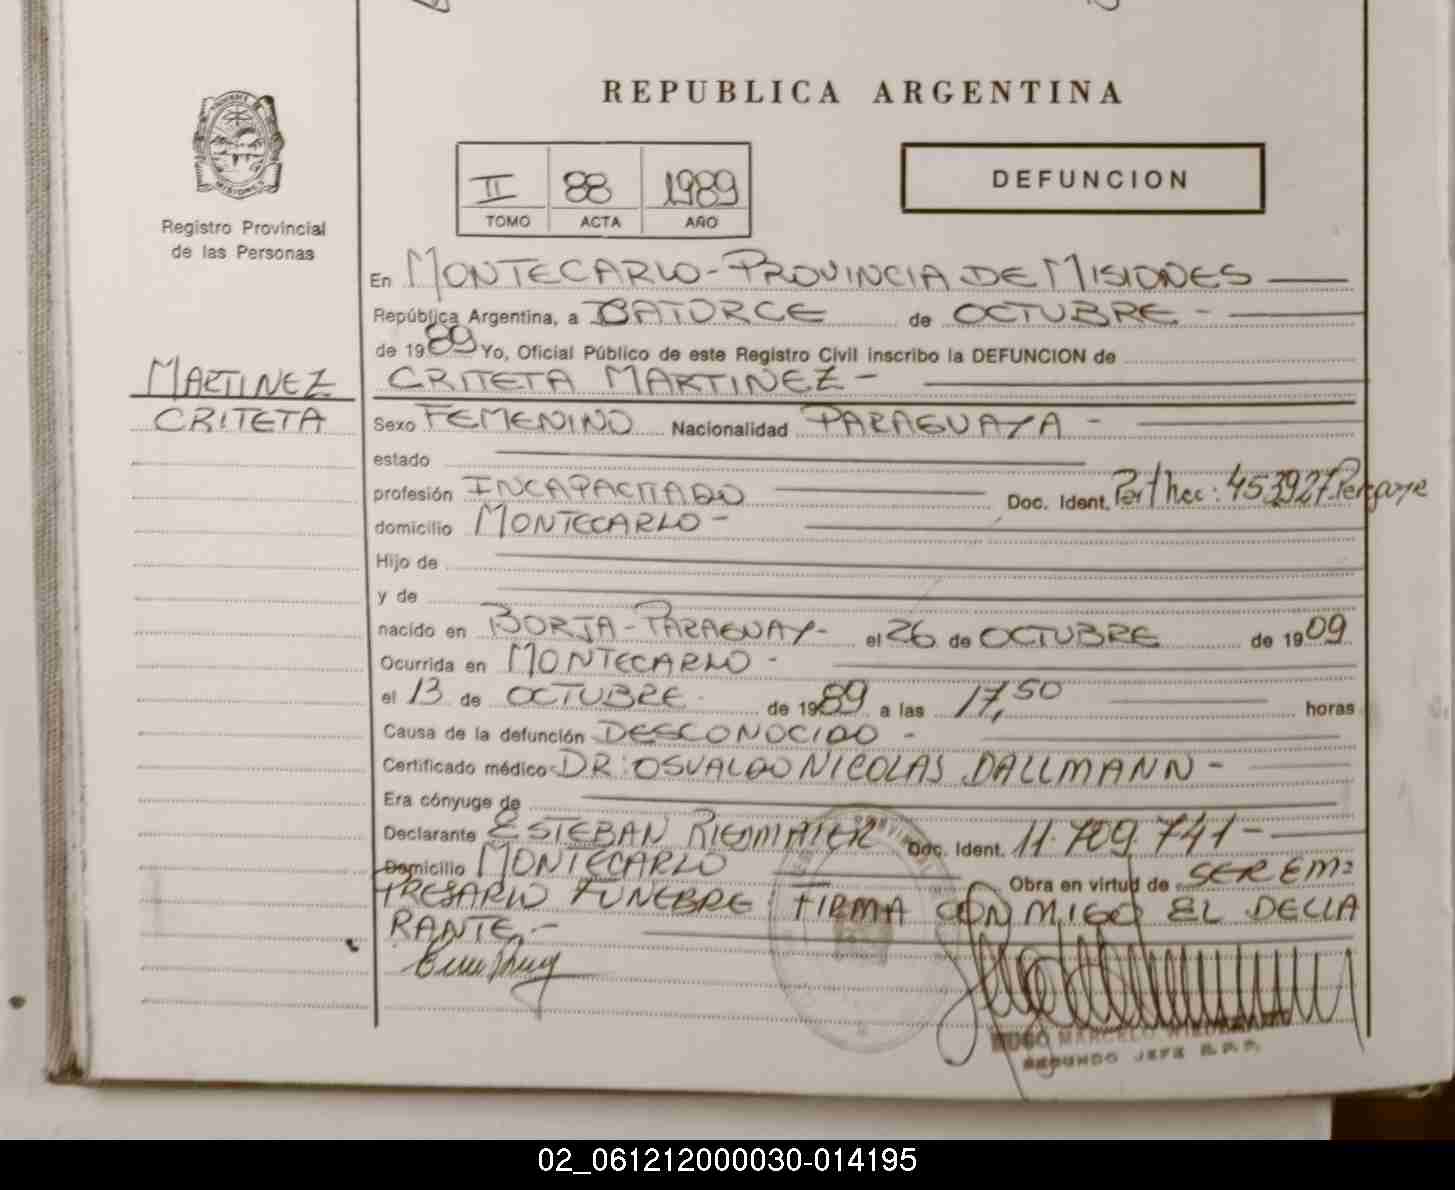 REPUBLICA ARGENTINA
MISIONES
Registro Provincial
de las Personas
II 88 1989
TOMO ACTA AÑO
DEFUNCION
En MONTECARLO - PROVINCIA DE MISIONES
República Argentina, a CATORCE de OCTUBRE -
de 1989 Yo, Oficial Público de este Registro Civil inscribo la DEFUNCION de
MARTINEZ
CRITETA
CRITETA MARTINEZ -
Sexo FEMENINO Nacionalidad PARAGUAYA -
estado
profesión INCAPACITADO Doc. Ident. 453927
domicilio MONTECARLO -
Hijo de
y de
nacido en BORJA - PARAGUAY - el 26 de OCTUBRE de 1909
Ocurrida en MONTECARLO -
el 13 de OCTUBRE de 1989 a las 17,50 horas
Causa de la defunción DESCONOCIDO -
Certificado médico DR. OSVALDO NICOLAS DALLMANN -
Era cónyuge de
Declarante ESTEBAN Doc. Ident. 11.709.741 -
Domicilio MONTECARLO Obra en virtud de SER EM=
PRESARIO FUNEBRE FIRMA CONMIGO EL DECLA
RANTE.-
HUGO MARCELO
SEGUNDO JEFE R.P.P.
02_061212000030-014195